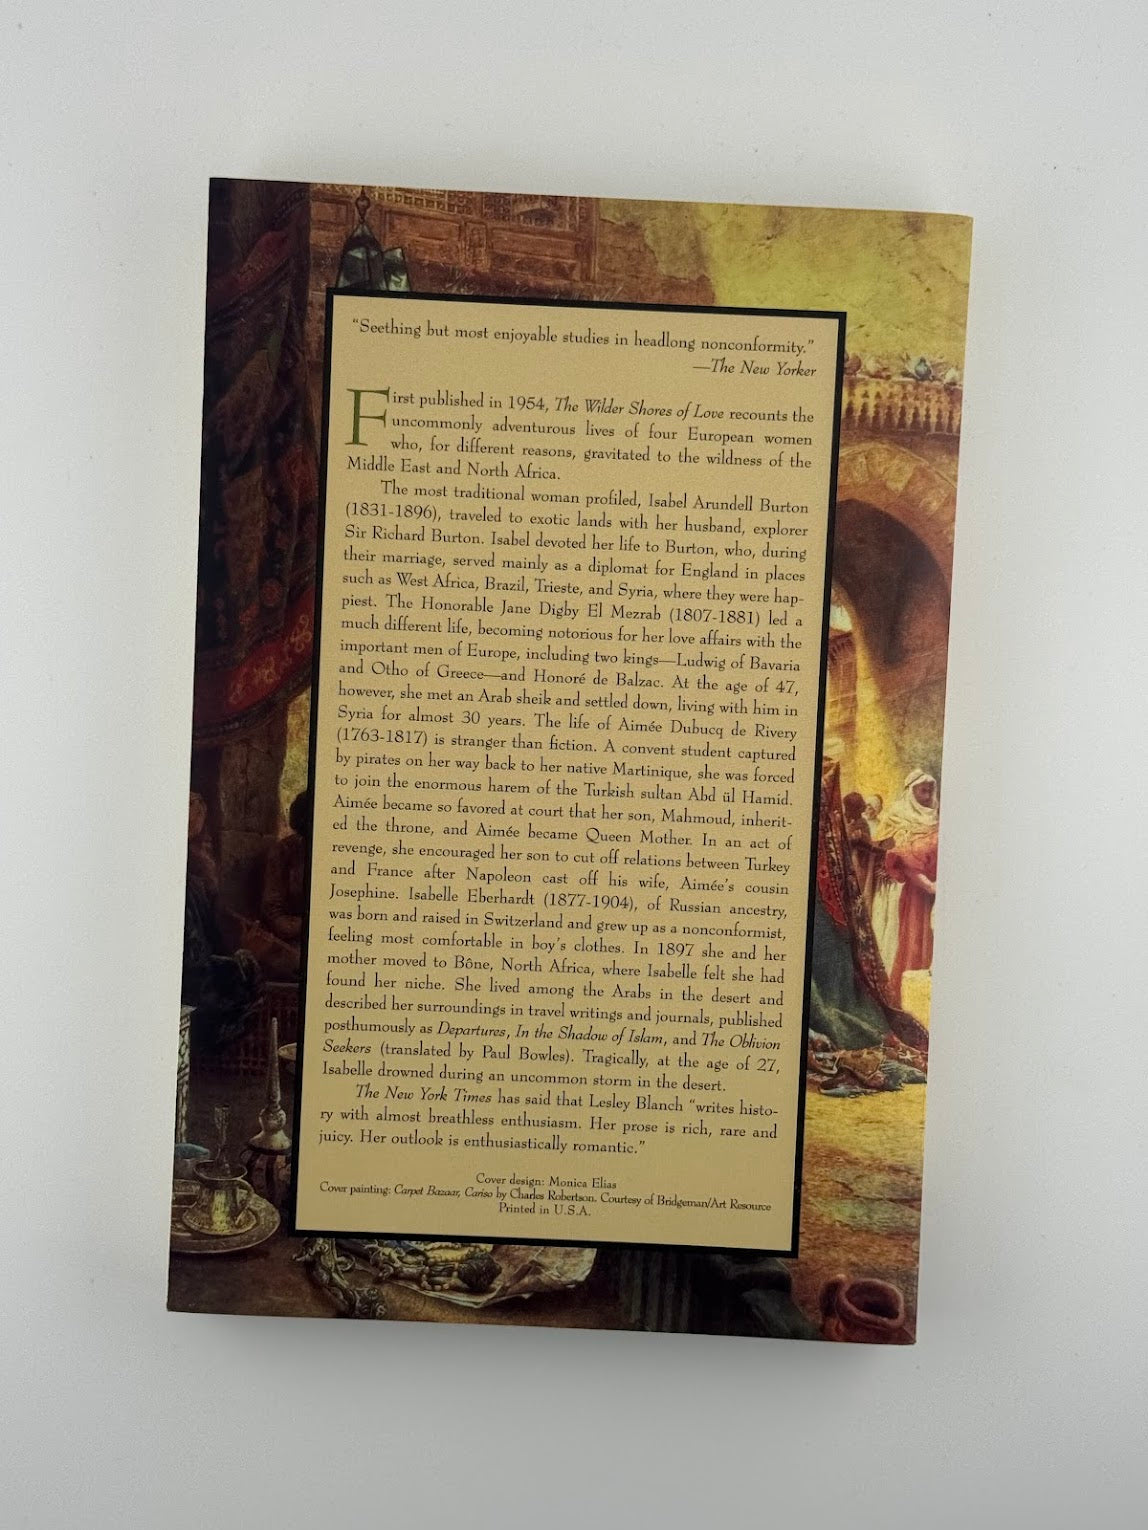 “Seething but most enjoyable studies in headlong nonconformity.”
—The New Yorker
First published in 1954, The Wilder Shores of Love recounts the
uncommonly adventurous lives of four European women
who, for different reasons, gravitated to the wildness of the
Middle East and North Africa.
The most traditional woman profiled, Isabel Arundell Burton
(1831-1896), traveled to exotic lands with her husband, explorer
Sir Richard Burton. Isabel devoted her life to Burton, who, during
their marriage, served mainly as a diplomat for England in places
such as West Africa, Brazil, Trieste, and Syria, where they were hap-
piest. The Honorable Jane Digby El Mezrab (1807-1881) led a
much different life, becoming notorious for her love affairs with the
important men of Europe, including two kings—Ludwig of Bavaria
and Otho of Greece—and Honoré de Balzac. At the age of 47,
however, she met an Arab sheik and settled down, living with him in
Syria for almost 30 years. The life of Aimée Dubucq de Rivery
(1763-1817) is stranger than fiction. A convent student captured
by pirates on her way back to her native Martinique, she was forced
to join the enormous harem of the Turkish sultan Abd ül Hamid.
Aimée became so favored at court that her son, Mahmoud, inherit-
ed the throne, and Aimée became Queen Mother. In an act of
revenge, she encouraged her son to cut off relations between Turkey
and France after Napoleon cast off his wife, Aimée’s cousin
Josephine. Isabelle Eberhardt (1877-1904), of Russian ancestry,
was born and raised in Switzerland and grew up as a nonconformist,
feeling most comfortable in boy’s clothes. In 1897 she and her
mother moved to Bône, North Africa, where Isabelle felt she had
found her niche. She lived among the Arabs in the desert and
described her surroundings in travel writings and journals, published
posthumously as Departures, In the Shadow of Islam, and The Oblivion
Seekers (translated by Paul Bowles). Tragically, at the age of 27,
Isabelle drowned during an uncommon storm in the desert.
The New York Times has said that Lesley Blanch “writes histo-
ry with almost breathless enthusiasm. Her prose is rich, rare and
juicy. Her outlook is enthusiastically romantic.”
Cover design: Monica Elias
Cover painting: Carpet Bazaar, Cariso by Charles Robertson. Courtesy of Bridgeman/Art Resource
Printed in U.S.A.